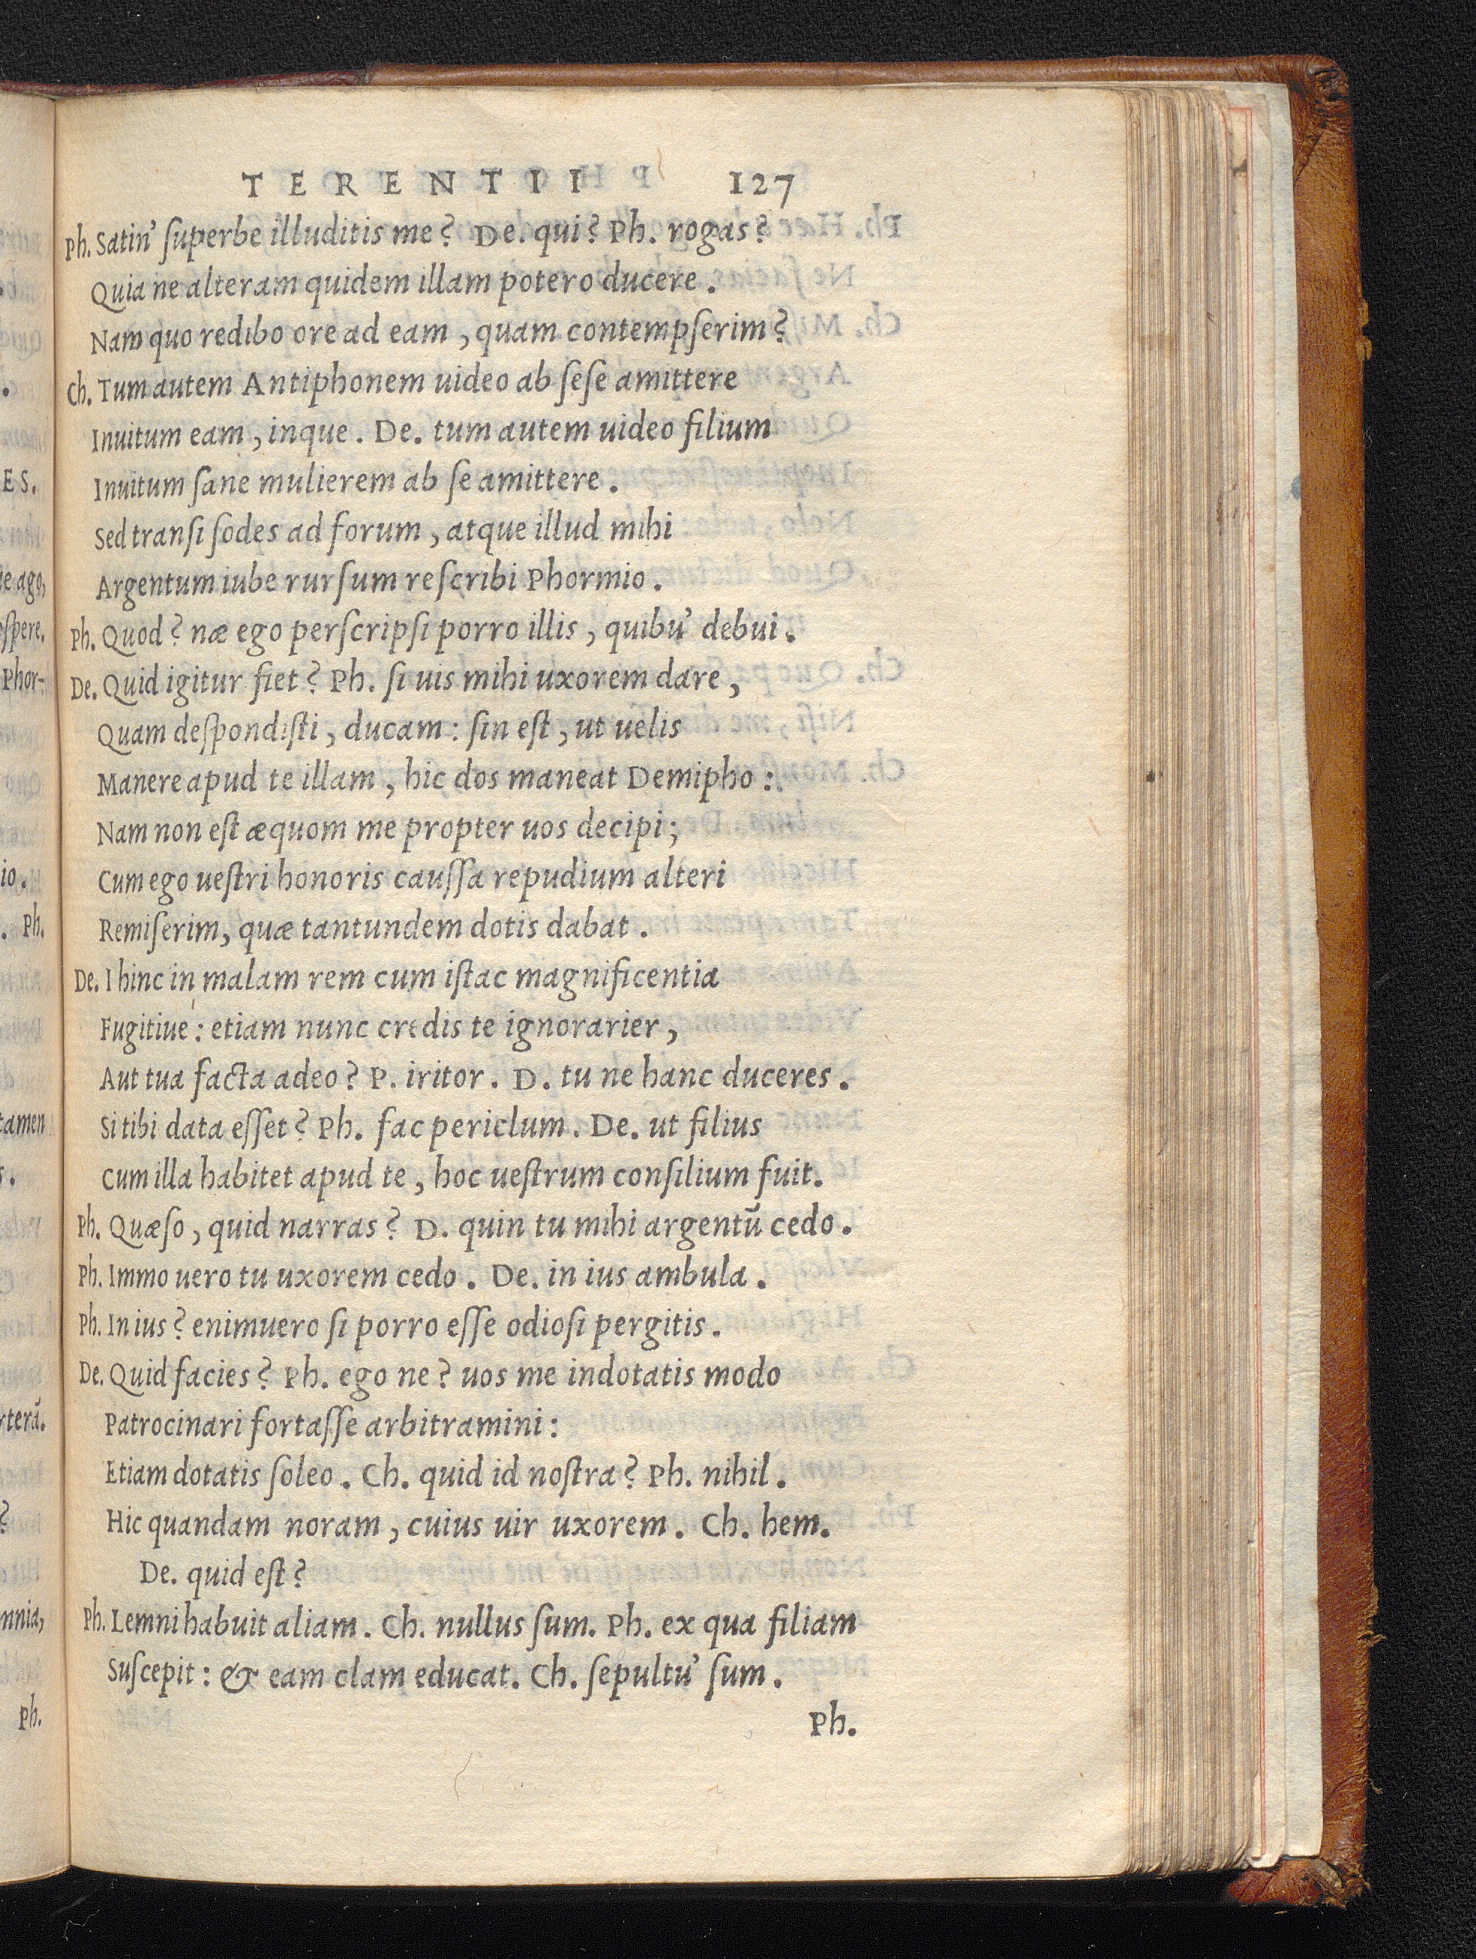 TERENTII 127
Ph. Satin' ſuperbe illuditis me? De. qui? Ph. rogas?
Quia ne alteram quidem illam potero ducere.
Nam quo redibo ore ad eam, quam contempſerim?
Ch. Tum autem Antiphonem uideo ab ſeſe amittere
Inuitum eam, inque. De. tum autem uideo filium
Inuitum ſane mulierem ab ſe amittere.
Sed tranſi ſodes ad forum, atque illud mihi
Argentum iube rurſum reſcribi Phormio.
Ph. Quod? næ ego perſcripſi porro illis, quibu' debui.
De. Quid igitur fiet? Ph. ſi uis mihi uxorem dare,
Quam deſpondiſti, ducam: ſin eſt, ut uelis
Manere apud te illam, hic dos maneat Demipho:
Nam non eſt æquom me propter uos decipi;
Cum ego ueſtri honoris cauſſa repudium alteri
Remiſerim, quæ tantundem dotis dabat.
De. I hinc in malam rem cum iſtac magnificentia
Fugitiue: etiam nunc credis te ignorarier,
Aut tua facta adeo? P. iritor. D. tu ne hanc duceres.
Si tibi data eſſet? Ph. fac periclum. De. ut filius
Cum illa habitet apud te, hoc ueſtrum conſilium fuit.
Ph. Quæſo, quid narras? D. quin tu mihi argentū cedo.
Ph. Immo uero tu uxorem cedo. De. in ius ambula.
Ph. In ius? enimuero ſi porro eſſe odioſi pergitis.
De. Quid facies? Ph. ego ne? uos me indotatis modo
Patrocinari fortaſſe arbitramini:
Etiam dotatis ſoleo. Ch. quid id noſtra? Ph. nihil.
Hic quandam noram, cuius uir uxorem. Ch. hem.
De. quid eſt?
Ph. Lemni habuit aliam. Ch. nullus ſum. Ph. ex qua filiam
Suſcepit: & eam clam educat. Ch. ſepultu' ſum.
Ph.